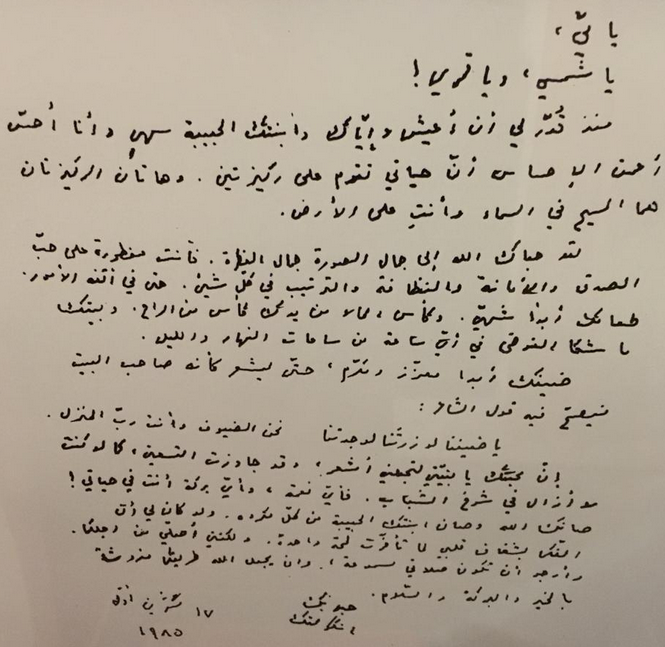 يا ميّ،
يا شمسي، ويا قمري!
منذ قُدّر لي أن أعيش وإيّاك وابنتك الحبيبة سهى وأنا أحسّ
أعمق الإحساس أنّ حياتي تقوم على ركيزتين. وهاتان الركيزتان
هما المسيح في السماء وأنتِ على الأرض.
لقد حباك الله إلى جمال الصورة جمال الفطرة. فأنت مفطورة على حبّ
الصدق والأمانة والنظافة والترتيب في كلّ شيئ. حتى في أتفه الأمور.
طعامك أبداً شهيّ. وكأس الماء من يدك كأس من الراح. وبيتك
ما شكا الفوضى في أيّ ساعة من ساعات النهار والليل.
ضيفك أبداً معزّز ومكرّم، حتّى ليشعر كأنه صاحب البيت
فيصحّ فيه قول الشاعر:
يا ضيفنا لو زرتَنا لوجدتنا نحن الضيوف وأنت ربّ المنزل.
إنّ محبّتك يا بنيّتي لتجعلني أشعر، وقد جاوزت التسعين، كما لو كنت
لا أزال في شرخ الشباب. فأيّ نعمة، وأيّ بركة أنت في حياتي!
صانك الله وصان ابنتك الحبيبة من كلّ مكروه. ولو كان لي أن
أفتديكما بشغاف قلبي لما تأخّرت لمحة واحدة. ولكنّني أصلّي من أجلكما.
وأرجو أن تكون صلاتي مسموعة، وان يجعل الله طريقكما مفروشة
بالخير والبركة والسّلام.
١٧ تشرين أوّل
١٩٨٥